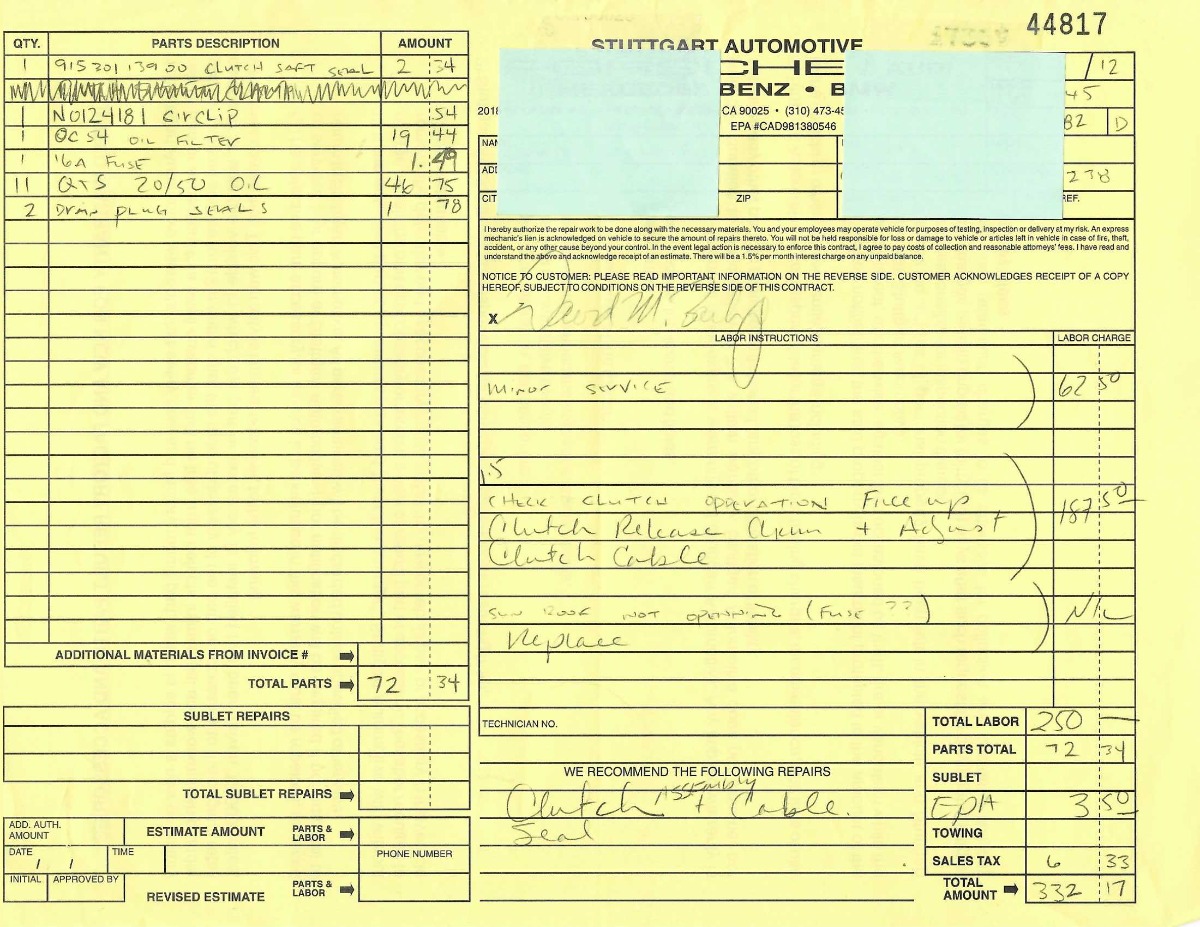 44817
QTY. PARTS DESCRIPTION AMOUNT
1 91530113900 CLUTCH SAFT SEAL 2 34
1 N0124181 CIRCLIP 54
1 OC54 OIL FILTER 19 44
1 16A FUSE 1.49
11 QTS 20/50 OIL 46 75
2 DRAIN PLUG SEALS 1 78
ADDITIONAL MATERIALS FROM INVOICE #
TOTAL PARTS 72 34
SUBLET REPAIRS
TOTAL SUBLET REPAIRS
ADD. AUTH. AMOUNT
ESTIMATE AMOUNT PARTS & LABOR
DATE / / TIME
PHONE NUMBER
INITIAL APPROVED BY
REVISED ESTIMATE PARTS & LABOR
STUTTGART AUTOMOTIVE
CHE
BENZ • B
/12
45
2018 CA 90025 • (310) 473-45
EPA #CAD981380546
82 D
NA
ADD
278
CIT ZIP REF.
I hereby authorize the repair work to be done along with the necessary materials. You and your employees may operate vehicle for purposes of testing, inspection or delivery at my risk. An express
mechanic's lien is acknowledged on vehicle to secure the amount of repairs thereto. You will not be held responsible for loss or damage to vehicle or articles left in vehicle in case of fire, theft,
accident, or any other cause beyond your control. In the event legal action is necessary to enforce this contract, I agree to pay costs of collection and reasonable attorneys' fees. I have read and
understand the above and acknowledge receipt of an estimate. There will be a 1.5% per month interest charge on any unpaid balance.
NOTICE TO CUSTOMER: PLEASE READ IMPORTANT INFORMATION ON THE REVERSE SIDE. CUSTOMER ACKNOWLEDGES RECEIPT OF A COPY
HEREOF, SUBJECT TO CONDITIONS ON THE REVERSE SIDE OF THIS CONTRACT.
X David M.
LABOR INSTRUCTIONS LABOR CHARGE
MINOR SERVICE 62 50
1.5
CHECK CLUTCH OPERATION Free up 187 50
Clutch Release + Adjust
Clutch Cable
SUN ROOF NOT OPENNING (FUSE ??) N/C
Replace
TECHNICIAN NO.
TOTAL LABOR 250 —
PARTS TOTAL 72 34
WE RECOMMEND THE FOLLOWING REPAIRS
SUBLET
Clutch ASSEMBLY + Cable.
Seal
EPA 3 50
TOWING
SALES TAX 6 33
TOTAL AMOUNT 332 17